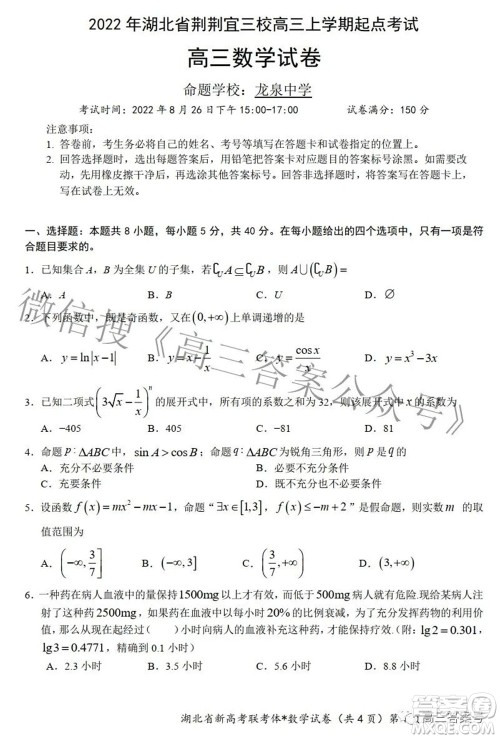 2022 年湖北省荆荆宜三校高三上学期起点考试
高三数学试卷
命题学校：龙泉中学
考试时间：2022 年 8 月 26 日下午 15:00-17:00 试卷满分：150 分
注意事项：
1. 答卷前，考生务必将自己的姓名、考号等填写在答题卡和试卷指定的位置上。
2. 回答选择题时，选出答案后，用铅笔把答题卡对应题目的答案标号涂黑。如需改动，用橡皮擦干净后，再选涂其他答案标号。回答非选择题时，将答案写在答题卡上，写在试卷上无效。
一、选择题：本题共 8 小题，每小题 5 分，共 40 分。在每小题给出的四个选项中，只有一项是符合题目要求的。
1．已知集合 A，B 为全集 U 的子集，若∁UA⊆∁UB，则 A∪(∁UB)＝
A．A B．B C．U D．∅
2．下列函数中，既是奇函数，又在(0,+∞)上单调递增的是
A． y=ln|x−1| B． y=x−1/x C． y=cosx/x D． y=x³−3x
3．已知二项式(3√x−1/x)ⁿ的展开式中，所有项的系数之和为 32，则该展开式中 x 的系数为
A．−405 B．405 C．−81 D．81
4．命题 p：ΔABC 中，sinA>cosB；命题 q：ΔABC 为锐角三角形，则 p 是 q 的
A．充分不必要条件 B．必要不充分条件
C．充要条件 D．既不充分也不必要条件
5．设函数 f(x)=mx²−mx−1，命题“∃x∈[1,3]，f(x)≤−m+2”是假命题，则实数 m 的取值范围为
A．(−∞,3/7] B．(−∞,3] C．(3/7,+∞) D．(3,+∞)
6．一种药在病人血液中的量保持1500mg以上才有效，而低于500mg病人就有危险.现给某病人注射了这种药2500mg，如果药在血液中以每小时20%的比例衰减，为了充分发挥药物的利用价值，那么从现在起经过（ ）小时向病人的血液补充这种药，才能保持疗效.（附：lg2=0.301，lg3=0.4771，精确到 0.1 小时）
A．2.3 小时 B．3.5 小时 C．5.6 小时 D．8.8 小时
湖北省新高考联考体*数学试卷（共 4 页）第
高三答案号
微信搜《高三答案公众号》